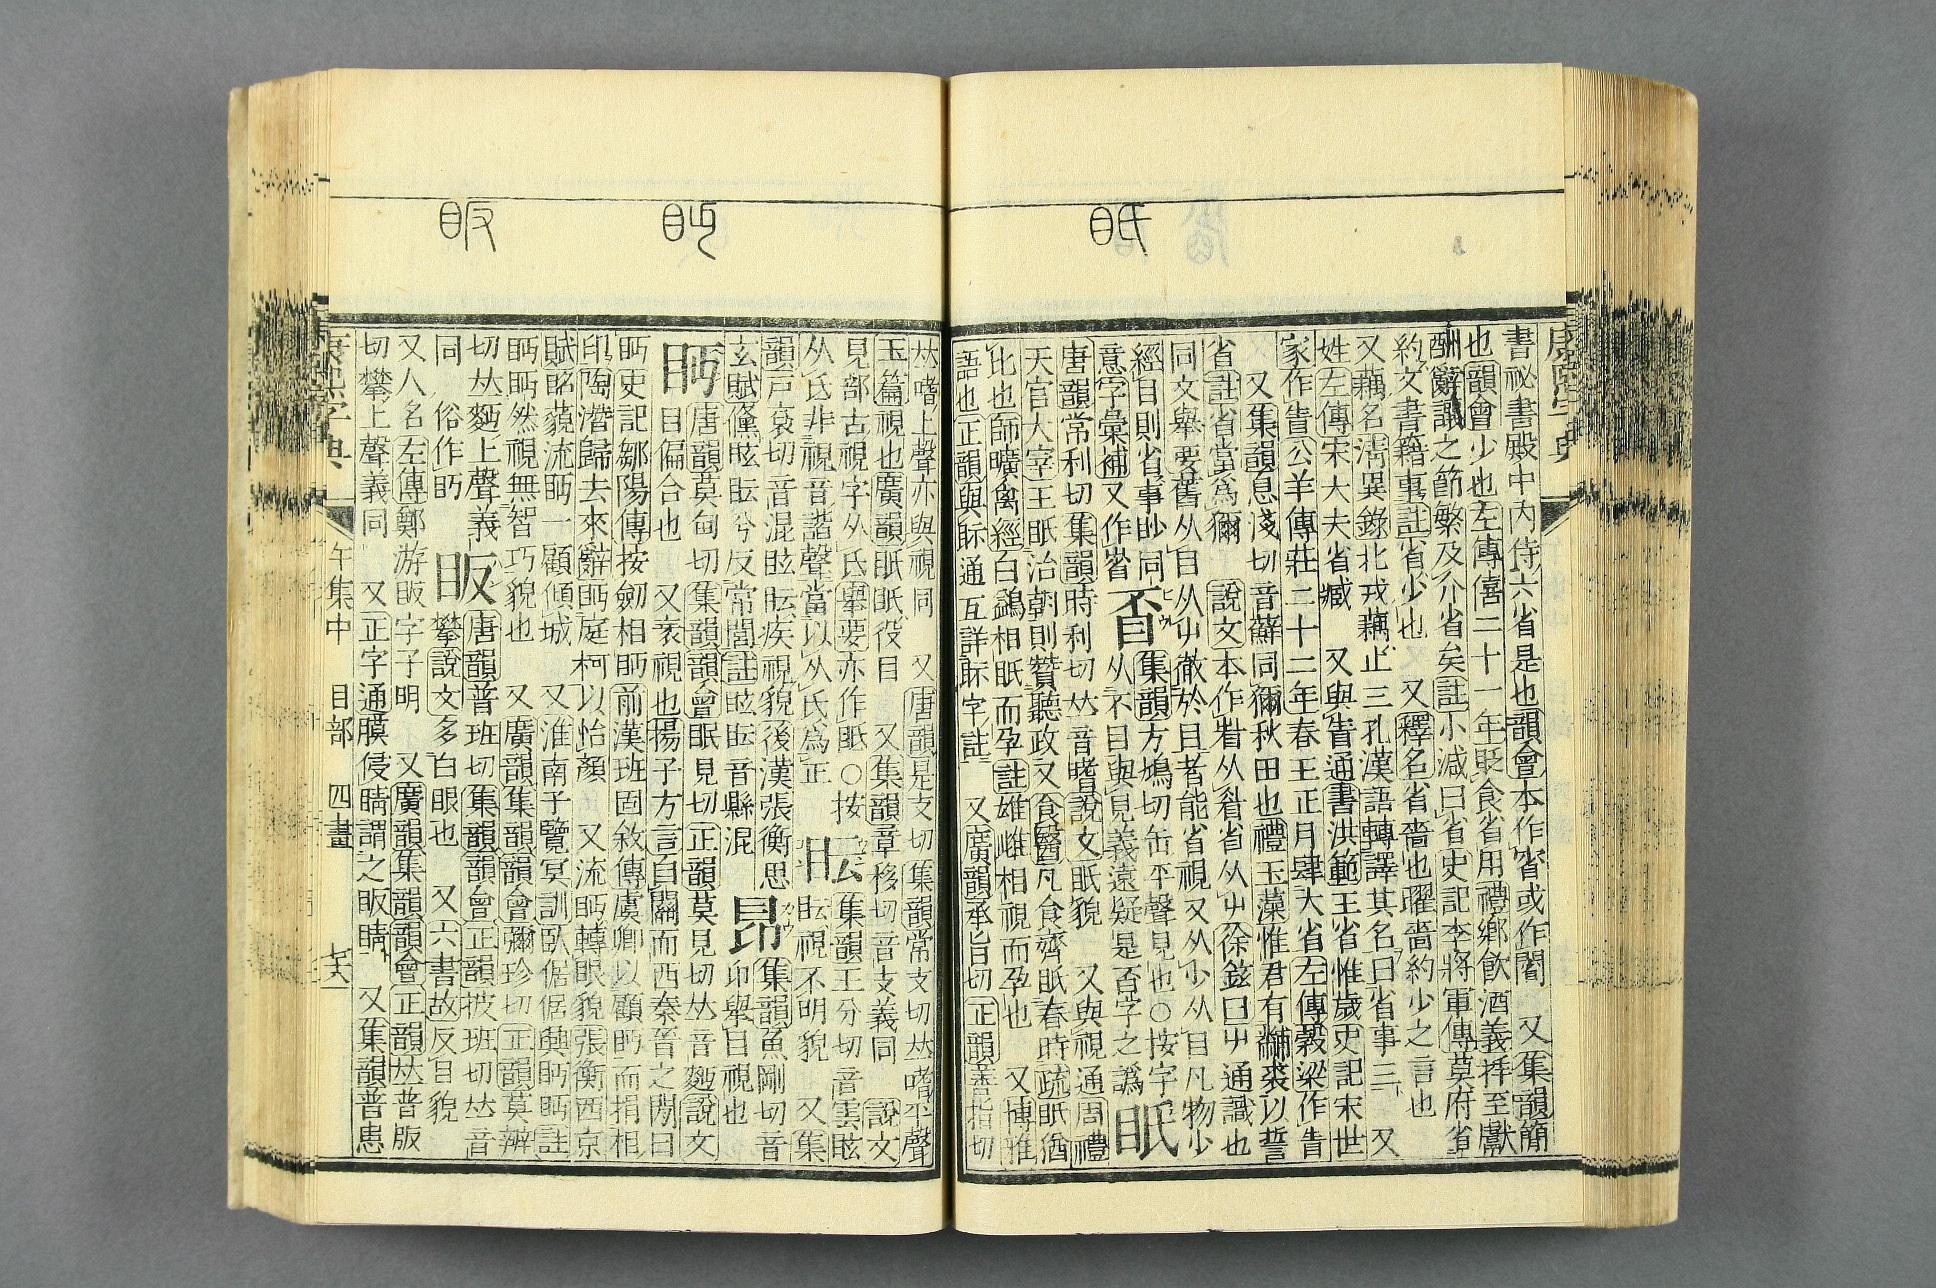 眂
書祕書殿中內侍六省是也韻會本作省或作 又集韻簡
也韻會少也左傳僖二十一年貶食省用禮鄉飲酒義拜至獻
酬辭讓之節繁及介省矣註小減曰省史記李將軍傳莫府省
約文書籍事註省少也 又釋名省嗇也曜嗇約少之言也
又藕名淸異錄北戎藕止三孔漢語轉譯其名曰省事三 又
姓左傳宋大夫省臧 又與眚通書洪範王省惟歲史記宋世
家作眚公羊傳莊二十二年春王正月肆大省左傳穀梁作眚
又集韻息淺切音蘚同獮秋田也禮玉藻惟君有黼裘以誓
省註省當爲獮 說文本作𥄕从眉省从屮徐鉉曰屮通識也
同文舉要舊从目从屮徹於且者能省視又从少从目凡物少
經目則省事眇同 集韻方鳩切缶平聲見也○按字
意字彙補又作 从不目與見義遠疑是否字之譌 眂
唐韻常利切集韻時利切𠀤音嗜說文眂貌 又與視通周禮
天官大宰王眂治朝則贊聽政又食醫凡食齊眂春時疏眂猶
比也師曠禽經白鷁相眂而孕註雄雌相視而孕也 又博雅
語也正韻與眎通互詳眎字註 又廣韻承旨切正韻善指切
眄
眅
𠀤嗜上聲亦與視同 又唐韻是支切集韻常支切𠀤嗜平聲
玉篇視也廣韻眂眂役目 又集韻章移切音支義同 說文
見部古視字从氏舉要亦作眂○按 眃 集韻王分切音雲眩
从氏非視音諧聲當以从氏爲正 眃視不明貌 又集
韻戸袞切音混眩眃疾視貌後漢張衡思 集韻魚剛切音
玄賦儵眩眃兮反常閭註眩眃音縣混 䀚 卬舉目視也
眄 唐韻莫甸切集韻韻會眠見切正韻莫見切𠀤音麪說文
目偏合也 又衺視也揚子方言自關而西秦晉之閒曰
眄史記鄒陽傳按劒相眄前漢班固敘傳虞卿以顧眄而捐相
印陶潛歸去來辭眄庭柯以怡顏 又流眄轉眼貌張衡西京
賦眳藐流眄一顧傾城 又淮南子覽冥訓臥倨倨興眄眄註
眄眄然視無智巧貌也 又廣韻集韻韻會彌珍切正韻莫辨
切𠀤麪上聲義 眅 唐韻普班切集韻韻會正韻披班切𠀤音
同 俗作眄 攀說文多白眼也 又六書故反目貌
又人名左傳鄭游眅字子明 又廣韻集韻韻會正韻𠀤普版
切攀上聲義同 又正字通膜侵睛謂之眅睛 又集韻普患
康熙字典 午集中 目部 四畫